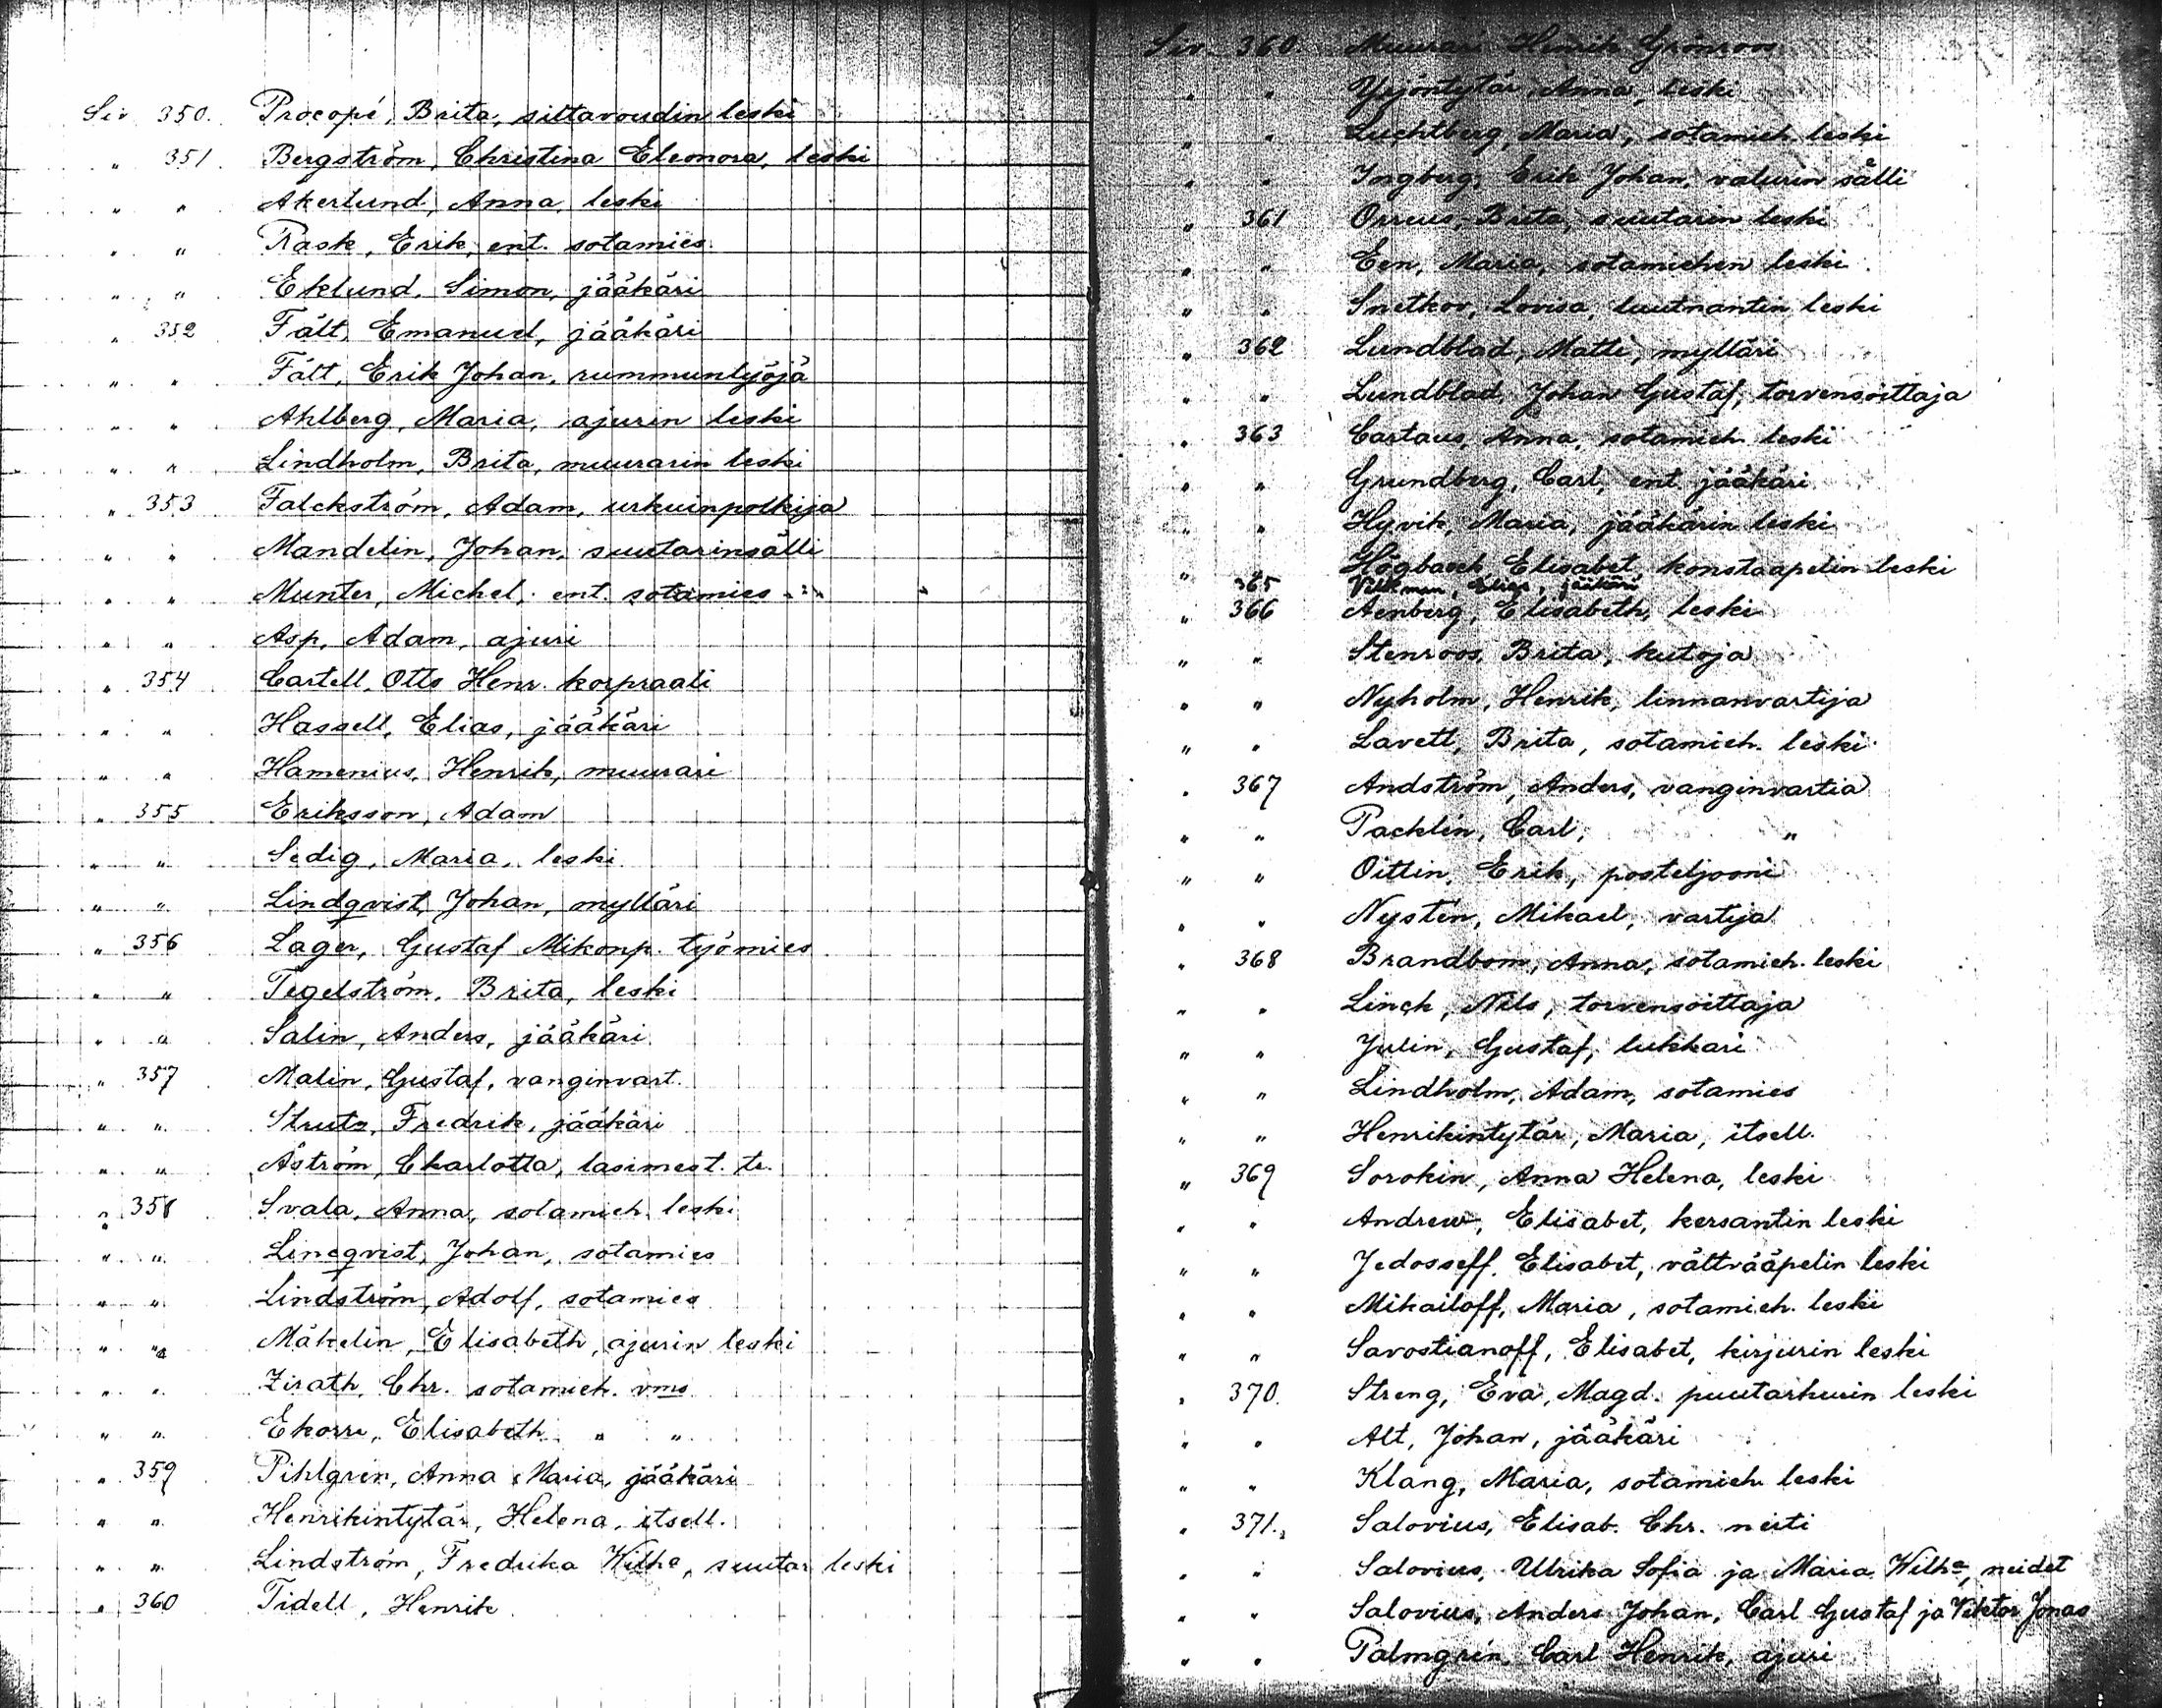 Siv 350. Procopé, Brita, siltavoudin leski
" 351 Bergström, Christina Eleonora, leski
" " Åkerlund, Anna, leski
" " Rask, Erik, ent. sotamies
" " Eklund, Simon, jääkäri
" 352 Fält, Emanuel, jääkäri
" " Fält, Erik Johan, rummunlyöjä
" " Ahlberg, Maria, ajurin leski
" " Lindholm, Brita, muurarin leski
" 353 Falckström, Adam, urkuinpolkija
" " Mandelin, Johan, suutarinsälli
" " Munter, Michel, ent. sotamies
" " Asp, Adam, ajuri
" 354 Cartell, Otto Henr. korpraali
" " Hassell, Elias, jääkäri
" " Hamenius, Henrik, muurari
" 355 Eriksson, Adam
" " Sedig, Maria, leski
" " Lindqvist, Johan, mylläri
" 356 Lager, Gustaf Mikonp. työmies
" " Tegelström, Brita, leski
" " Salin, Anders, jääkäri
" 357 Malin, Gustaf, vanginvart.
" " Strutz, Fredrik, jääkäri
" " Åström, Charlotta, lasimest. tr.
" 358 Svala, Anna, sotamieh. leski
" " Lineqvist, Johan, sotamies
" " Lindström, Adolf, sotamies
" " Mäkelin, Elisabeth, ajurin leski
" " Zirath, Chr. sotamieh. vmo
" " Ekorre, Elisabeth " "
" 359 Pihlgren, Anna Maria, jääkäri
" " Henrikintytär, Helena, itsell.
" " Lindström, Fredrika Wilha, suutar leski
" 360 Tidell, Henrik
Siv 360 Muurari Henrik Grönroos
" " Yrjöntytär, Anna, leski
" " Luchtberg, Maria, sotamieh. leski
" " Ingberg, Erik Johan, valurin sälli
" 361 Orreus, Brita, suutarin leski
" " Een, Maria, sotamiehen leski
" " Snetkov, Lovisa, luutnantin leski
" 362 Lundblad, Matti, mylläri
" " Lundblad, Johan Gustaf, torvensoittaja
" 363 Cartaus, Anna, sotamieh. leski
" " Grundberg, Carl, ent. jääkäri
" " Hyvik, Maria, jääkärin leski
" Högback, Elisabet, konstaapelin leski
365 Vilkman, Elias, jääkäri
" 366 Aenberg, Elisabeth, leski
" " Stenroos, Brita, kutoja
" " Nyholm, Henrik, linnanvartija
" " Lavett, Brita, sotamieh. leski
" 367 Andström, Anders, vanginvartia
" " Packlén, Carl, "
" " Oittin, Erik, posteljooni
" " Nystén, Mikael, vartija
" 368 Brandbom, Anna, sotamieh. leski
" " Linck, Nils, torvensoittaja
" " Julin, Gustaf, lukkari
" " Lindholm, Adam, sotamies
" " Henrikintytär, Maria, itsell.
" 369 Sorokin, Anna Helena, leski
" " Andrew, Elisabet, kersantin leski
" " Jedosseff, Elisabet, vältvääpelin leski
" " Mihailoff, Maria, sotamieh. leski
" " Savostianoff, Elisabet, kirjurin leski
" 370. Streng, Eva, Magd. puutarhurin leski
" " Alt, Johan, jääkäri
" " Klang, Maria, sotamieh. leski
" 371. Salovius, Elisab. Chr. neiti
" " Salovius, Ulrika Sofia ja Maria Wilha, neidet
" " Salovius, Anders Johan, Carl Gustaf ja Viktor Jonas
" " Palmgrén, Carl Henrik, ajuri